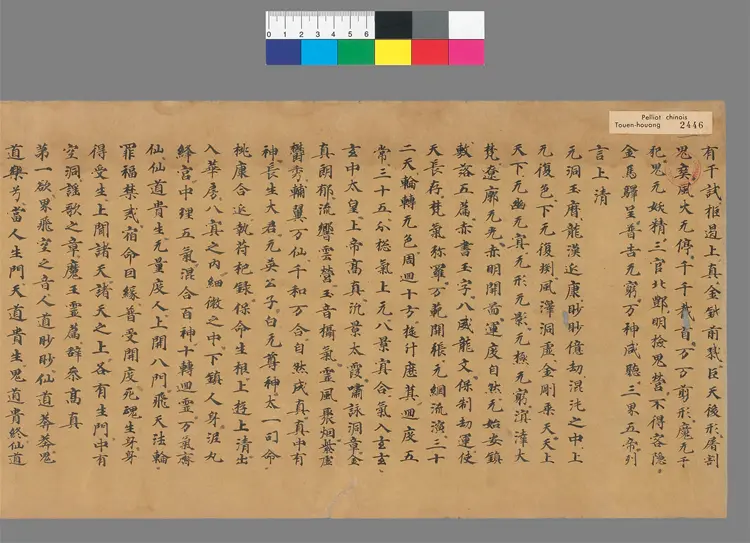 Pelliot chinois
Touen-houang 2446
0 1 2 3 4 5 6
有干試拒遏上真金鉞前戮巨天後形屠割
鬼爽風火无停千千截首万万剪形魔无干
犯鬼无妖精三官北酆明檢鬼營不得容隱
金馬驛呈普告无窮万神咸聽三界五帝列
言上清
元洞玉曆龍漢延康眇眇億劫混沌之中上
无復色下无復渕風澤洞虛金剛乘天天上
天下无幽无冥无形无影无極无窮溟涬大
梵遼廓无光赤明開啚運度自然元始安鎮
敷落五篇赤書玉字八威龍文保制劫運使
天長存梵氣弥羅万範開張元綱流演三十
二天輪轉无色周迴十方旋斗歷箕迴度五
常三十五分惣氣上元八景冥合氣入玄玄
玄中太皇上帝高真汎景太霞嘯詠洞章金
真朗郁流響雲營玉音攝氣靈風聚烟紫虛
欝秀輔翼万仙千和万合自然成真真中有
神長生大君无英公子白元尊神太一司命
桃康合延執符把錄保命生根上遊上清出
入華房八真之内細微之中下鎮人身泥丸
絳宮中理五氣混合百神十轉迴靈万氣齊
仙仙道貴生无量度人上開八門飛天法輪
罪福禁戒宿命因緣普受開度死魂生身身
得受生上聞諸天諸天之上各有生門中有
空洞謠歌之章魔王靈篇辭參高真
第一欲界飛空之音人道眇眇仙道莽莽鬼
道樂兮當人生門天道貴生鬼道貴終仙道